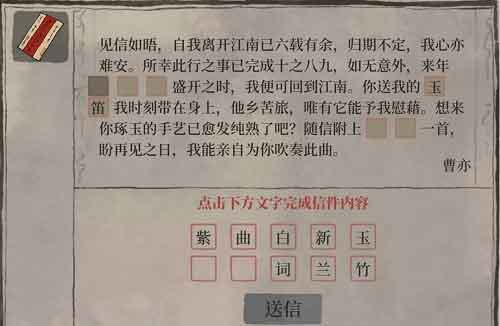 见信如晤，自我离开江南已六载有余，归期不定，我心亦
难安。所幸此行之事已完成十之八九，如无意外，来年
盛开之时，我便可回到江南。你送我的 玉
笛 我时刻带在身上，他乡苦旅，唯有它能予我慰藉。想来
你琢玉的手艺已愈发纯熟了吧？随信附上 一首，
盼再见之日，我能亲自为你吹奏此曲。
曹亦
点击下方文字完成信件内容
紫 曲 白 新 玉
词 兰 竹
送信